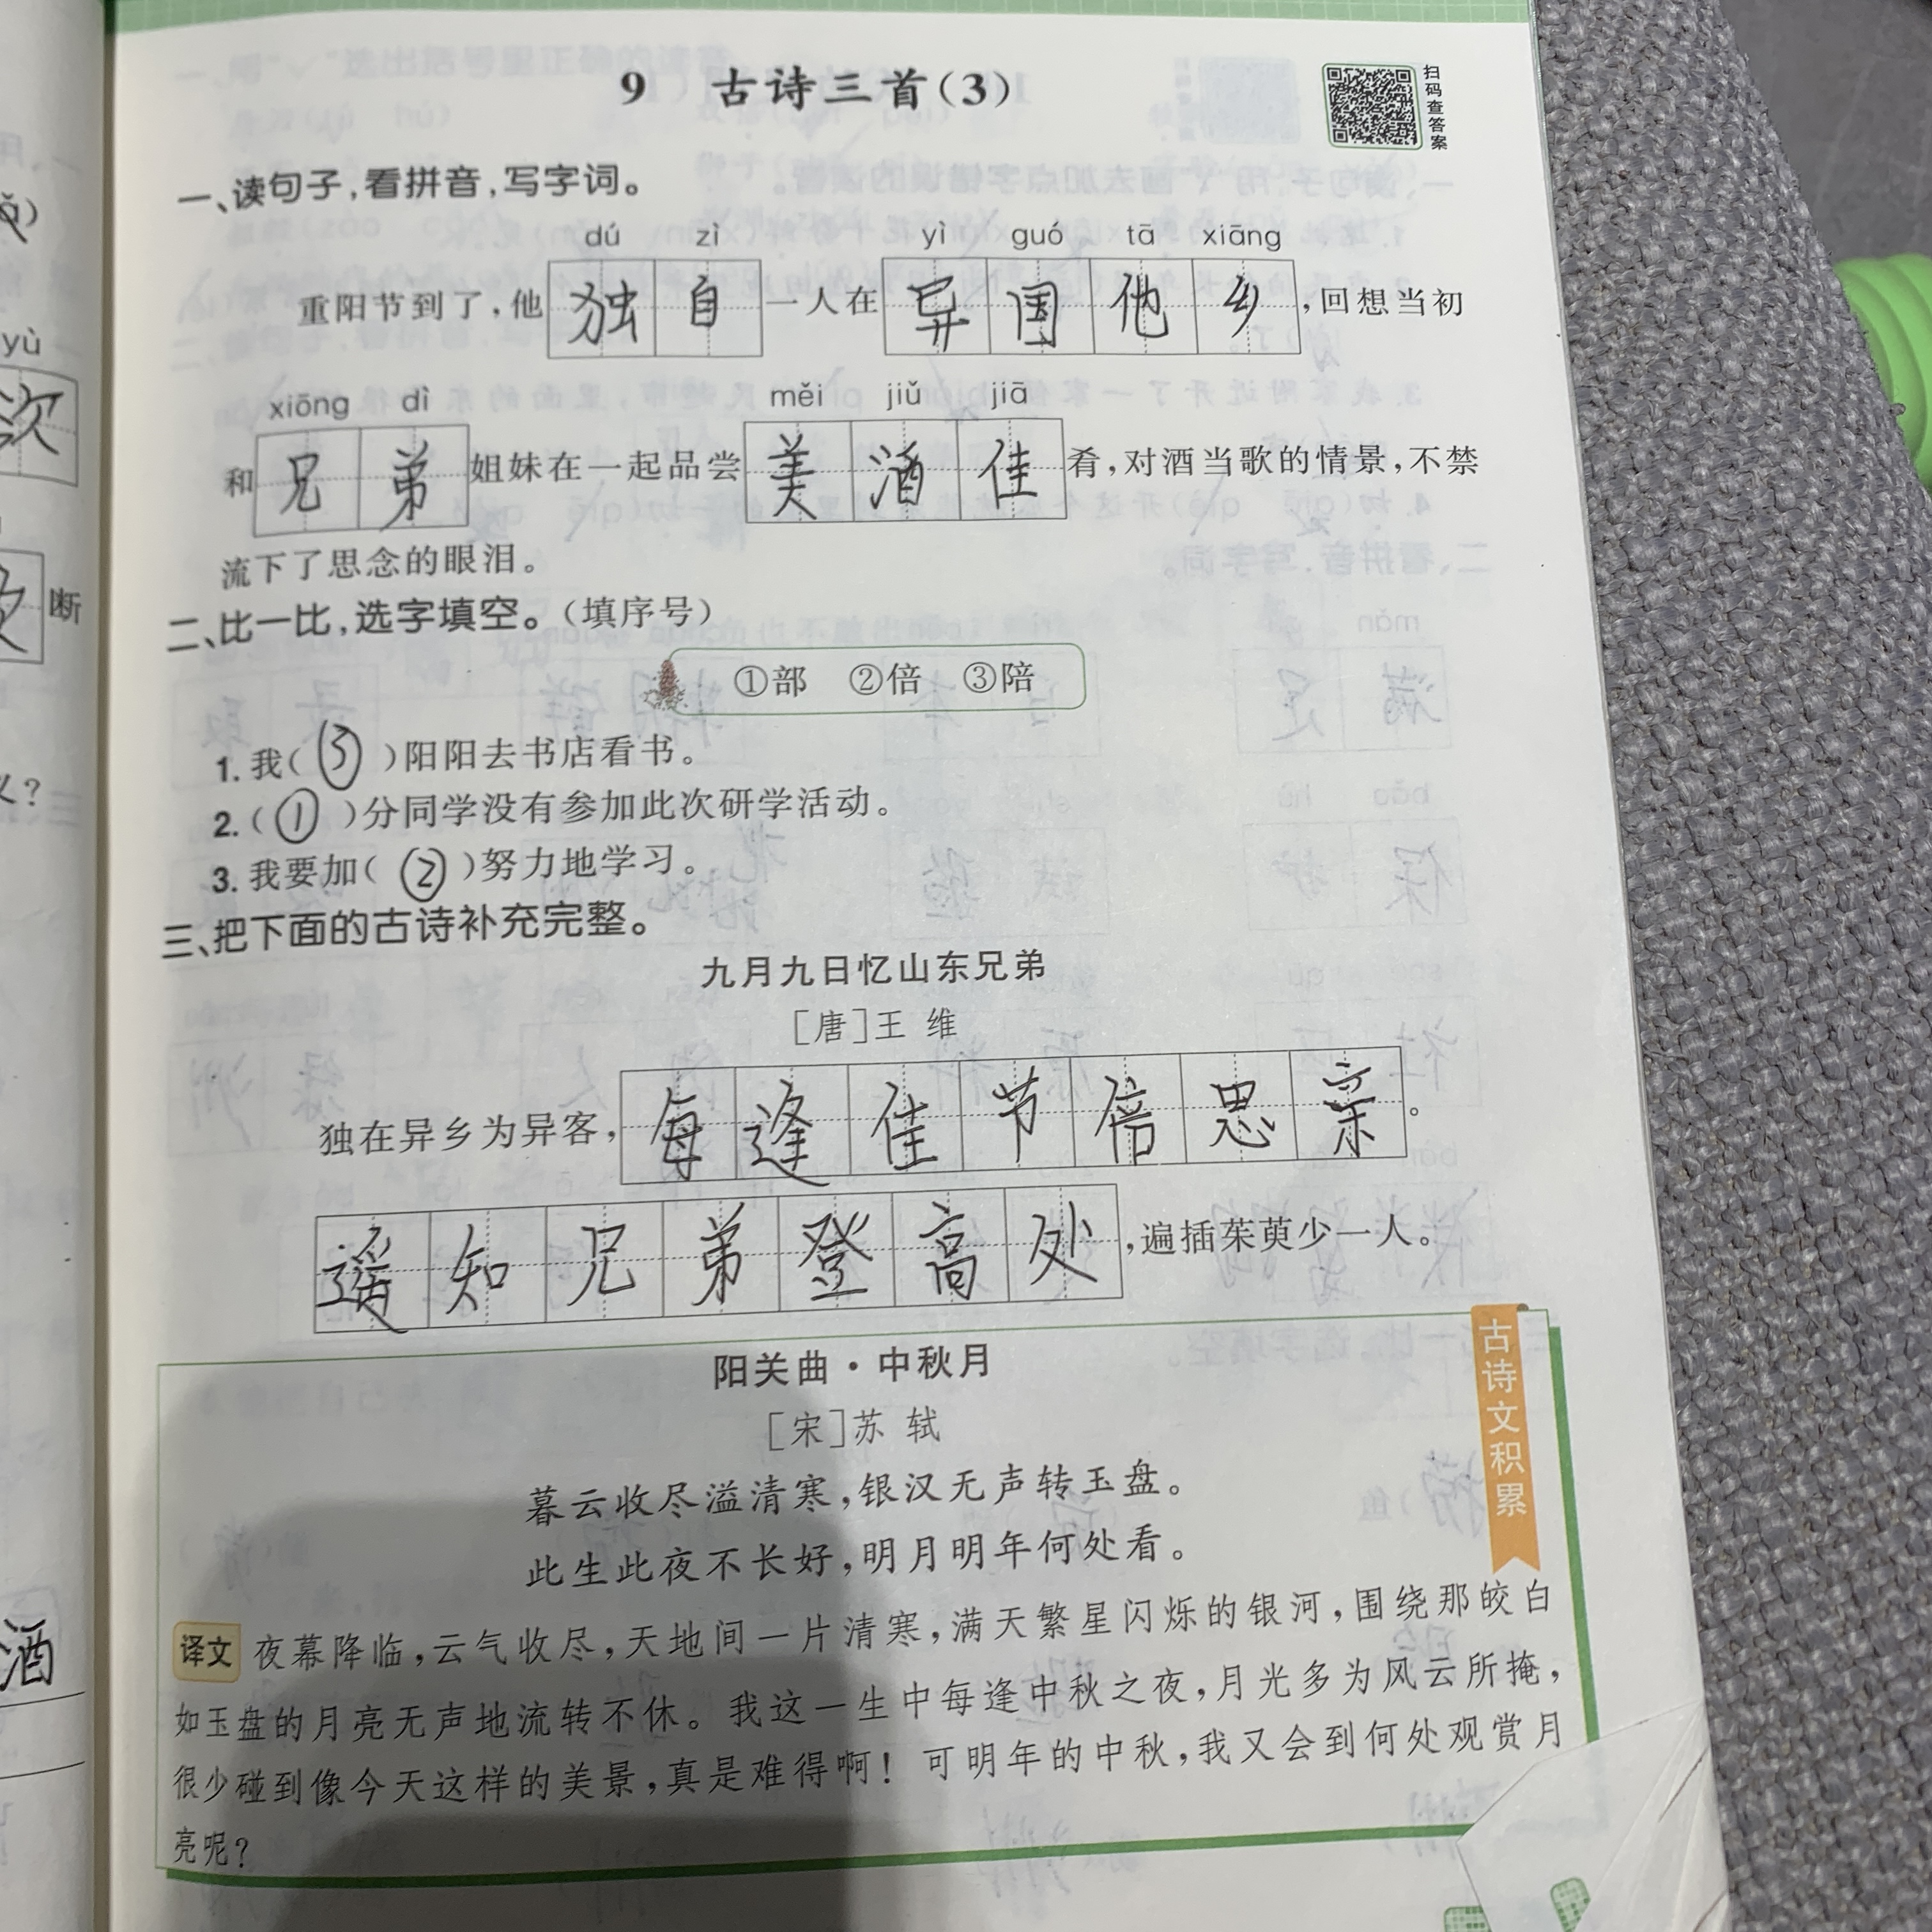 9 古诗三首(3)
扫码查答案
一、读句子,看拼音,写字词。
dú zì yì guó tā xiāng
重阳节到了,他独自一人在异国他乡,回想当初
xiōng dì měi jiǔ jiā
和兄弟姐妹在一起品尝美酒佳肴,对酒当歌的情景,不禁
流下了思念的眼泪。
二、比一比,选字填空。(填序号)
①部 ②倍 ③陪
1. 我(③)阳阳去书店看书。
2. (①)分同学没有参加此次研学活动。
3. 我要加(②)努力地学习。
三、把下面的古诗补充完整。
九月九日忆山东兄弟
[唐]王 维
独在异乡为异客,每逢佳节倍思亲。
遥知兄弟登高处,遍插茱萸少一人。
古诗文积累
阳关曲·中秋月
[宋]苏 轼
暮云收尽溢清寒,银汉无声转玉盘。
此生此夜不长好,明月明年何处看。
译文 夜幕降临,云气收尽,天地间一片清寒,满天繁星闪烁的银河,围绕那皎白
如玉盘的月亮无声地流转不休。我这一生中每逢中秋之夜,月光多为风云所掩,
很少碰到像今天这样的美景,真是难得啊!可明年的中秋,我又会到何处观赏月
亮呢?
yù
断
酒